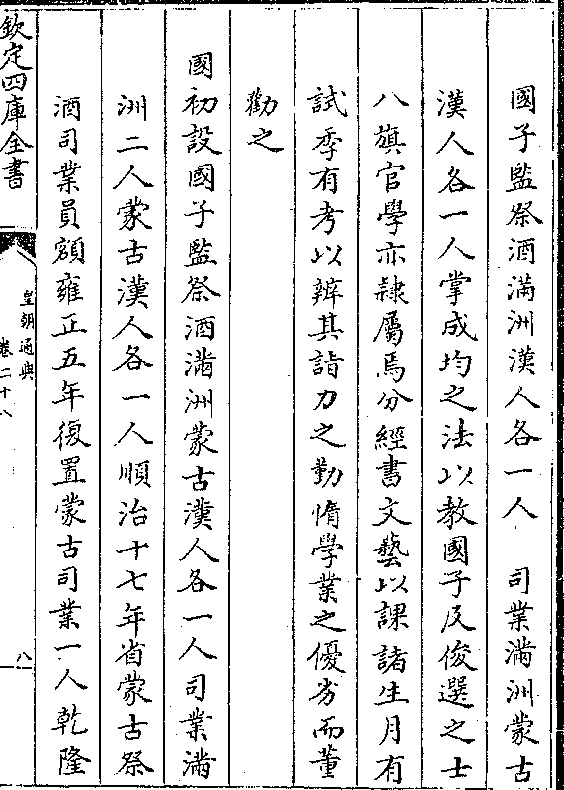 國子監祭酒滿洲漢人各一人　司業滿洲蒙古
漢人各一人掌成均之法以教國子及俊選之士
八旗官學亦隷屬焉分經書文藝以課諸生月有
試季有考以辨其詣力之勤惰學業之優劣而董
勸之
國初設國子監祭酒滿洲蒙古漢人各一人司業滿
洲二人蒙古漢人各一人順治十七年省蒙古祭
酒司業員額雍正五年復置蒙古司業一人乾隆
欽定四庫全書
皇朝通典
卷二十八
八